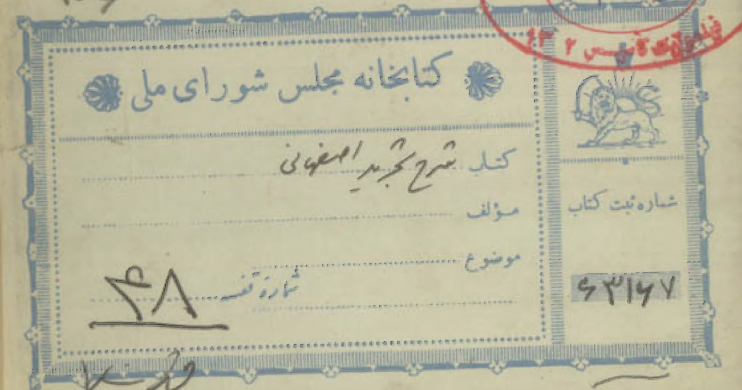 کتابخانه مجلس شورای ملی
کتاب شرح تجرید اصفهانی
مؤلف
موضوع
شماره قفسه ۴۸
شماره ثبت کتاب
۶۳۱۶۷